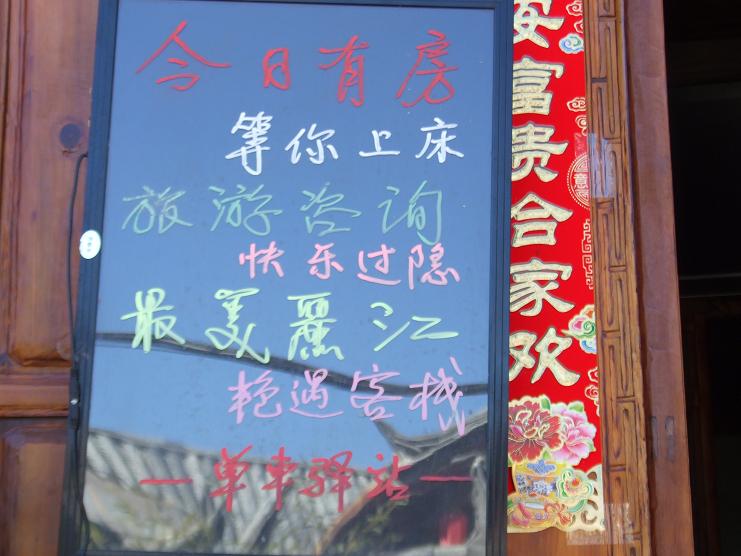 今日有房
等你上床
旅游咨询
快乐过隐
最美麗江
艳遇客栈
—单车驿站—
安富贵合家欢
意